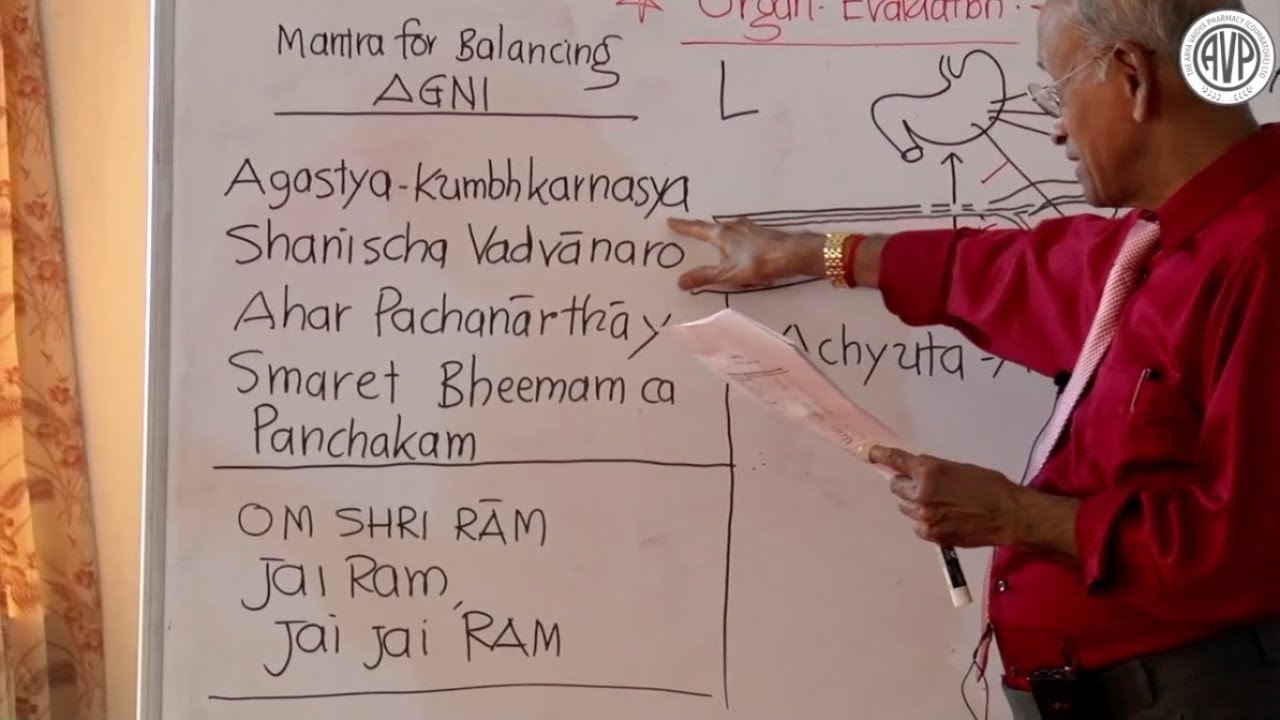 Mantra for Balancing
AGNI
Agastya-Kumbhkarnasya
Shanischa Vadvānaro
Ahar Pachanārthāy
Smaret Bheemam ca
Panchakam
OM SHRI RĀM
Jai Ram,
Jai jai RAM
Organ Evaluation
L
Achyuta -
THE ARYA VAIDYA PHARMACY (COIMBATORE) LTD
AVP